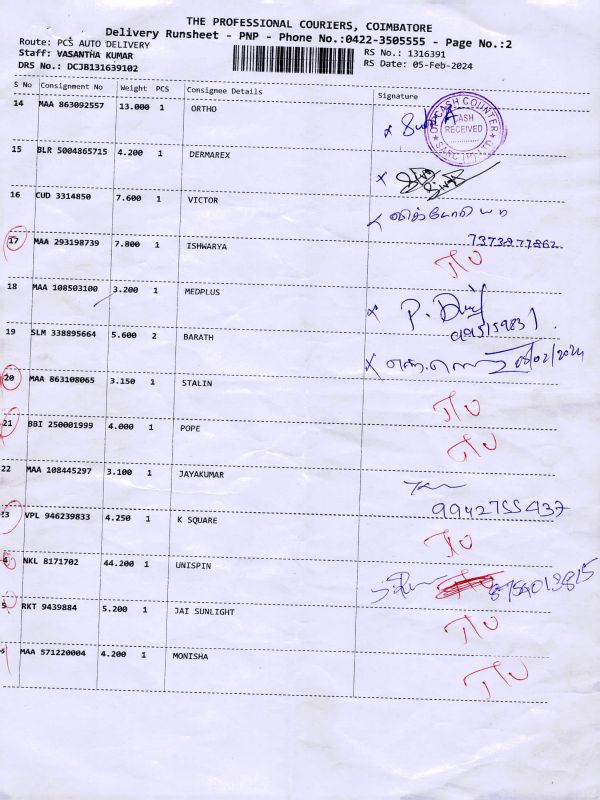 THE PROFESSIONAL COURIERS, COIMBATORE
Delivery Runsheet - PNP - Phone No.:0422-3505555 - Page No.:2
Route: PCS AUTO DELIVERY
RS No.: 1316391
Staff: VASANTHA KUMAR
RS Date: 05-Feb-2024
DRS No.: DCJB131639102
S No Consignment No Weight PCS Consignee Details Signature
14 MAA 863092557 13.000 1 ORTHO
CASH COUNTER
CASH
RECEIVED
15 BLR 5004865715 4.200 1 DERMAREX
16 CUD 3314850 7.600 1 VICTOR
7373977862
17 MAA 293198739 7.800 1 ISHWARYA
18 MAA 108503100 3.200 1 MEDPLUS
19 SLM 338895664 5.600 2 BARATH
20 MAA 863108065 3.150 1 STALIN
21 BBI 250001999 4.000 1 POPE
22 MAA 108445297 3.100 1 JAYAKUMAR
9942755437
VPL 946239833 4.250 1 K SQUARE
NKL 8171702 44.200 1 UNISPIN
RKT 9439884 5.200 1 JAI SUNLIGHT
MAA 571220004 4.200 1 MONISHA